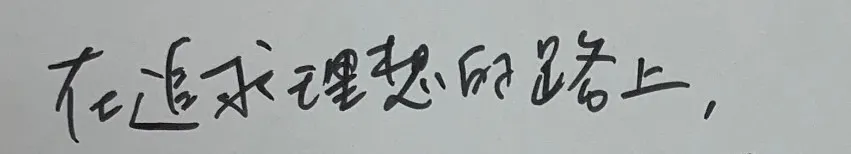 在追求理想的路上，